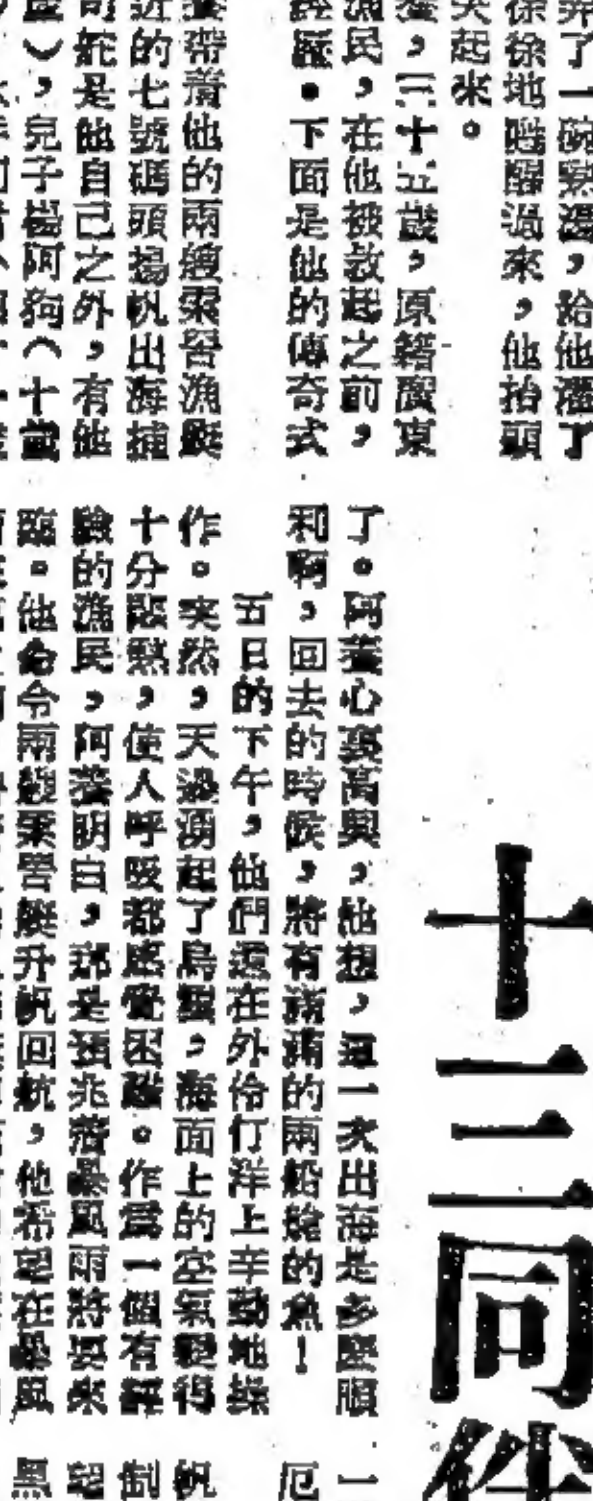 十三同伴
弄了一碗熱湯，給他灌了
徐徐地甦醒過來，他抬頭
哭起來。
養，三十五歲，原籍廣東
漁民，在他被救起之前，
經歷。下面是他的傳奇式
養帶着他的兩艘索罟漁艇
近的七號碼頭揚帆出海捕
司舵是他自己之外，有他
歲），兒子楊阿狗（十歲
了。阿養心裏高興，他想，這一次出海是多麼順
利啊，回去的時候，將有滿滿的兩船艙的魚！
五日的下午，他們還在外伶仃洋上辛勤地操
作。突然，天邊湧起了烏雲，海面上的空氣變得
十分悶熱，使人呼吸都感覺困難。作爲一個有經
驗的漁民，阿養明白，那是預兆着暴風雨將要來
臨。他命令兩艘索罟艇升帆回航，他希望在暴風
一
厄
帆
制
望
黑